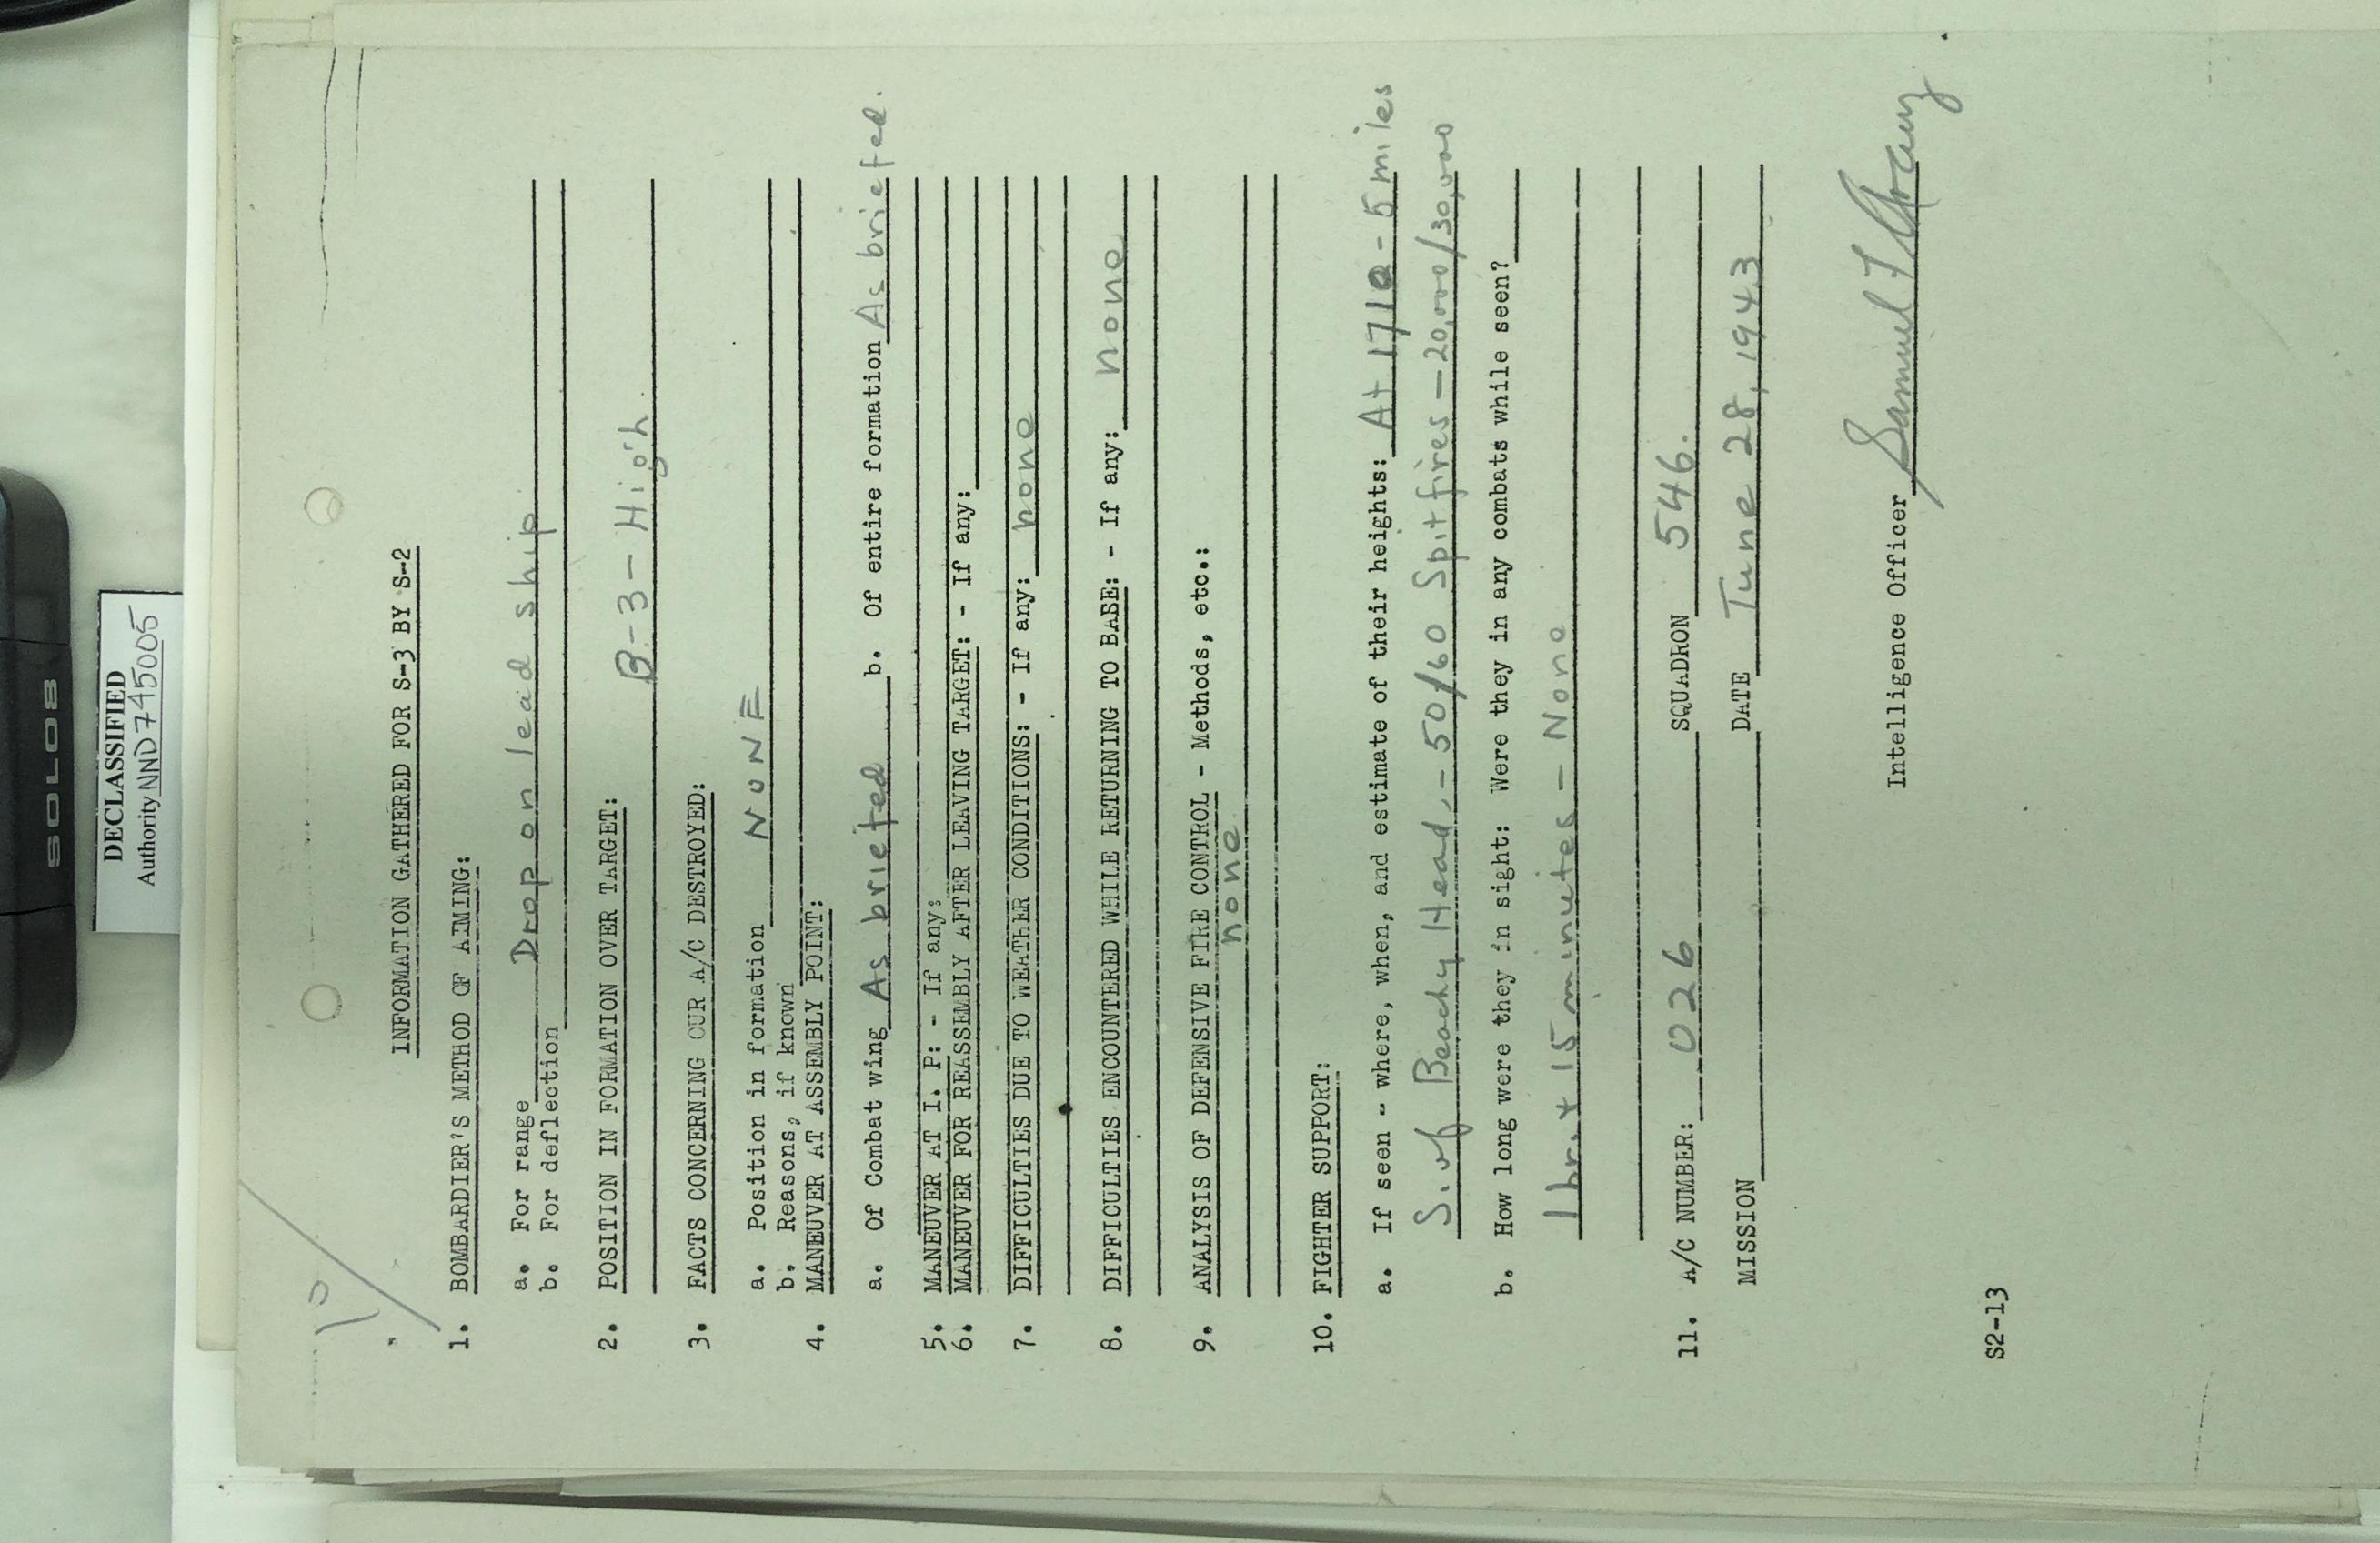 SOLO8
DECLASSIFIED
Authority NND745005
10
INFORMATION GATHERED FOR S-3 BY S-2
1. BOMBARDIER'S METHOD OF AIMING:
a. For range Drop on lead ship
b. For deflection
2. POSITION IN FORMATION OVER TARGET:
B-3-High.
3. FACTS CONCERNING OUR A/C DESTROYED:
a. Position in formation NONE
b. Reasons, if known
4. MANEUVER AT ASSEMBLY POINT:
a. Of Combat wing As briefed b. Of entire formation As briefed.
5. MANEUVER AT I. P: - If any:
6. MANEUVER FOR REASSEMBLY AFTER LEAVING TARGET: - If any:
7. DIFFICULTIES DUE TO WEATHER CONDITIONS: - If any: none
8. DIFFICULTIES ENCOUNTERED WHILE RETURNING TO BASE: - If any: none
9. ANALYSIS OF DEFENSIVE FIRE CONTROL - Methods, etc.:
none
10. FIGHTER SUPPORT:
a. If seen - where, when, and estimate of their heights: At 1710 - 5 miles
S. of Beachy Head, - 50/60 Spitfires - 20,000/30,000
b. How long were they in sight: Were they in any combats while seen?
1 hr. + 15 minutes - None
11. A/C NUMBER: 026 SQUADRON 546.
MISSION DATE June 28, 1943
Intelligence Officer Samuel
S2-13